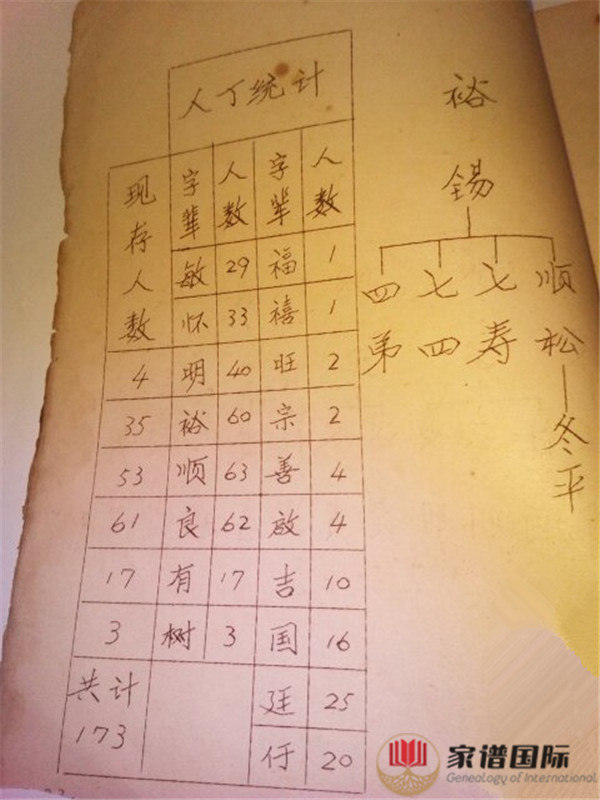 人丁统计
现存人数 字辈 人数 字辈 人数
敏 29 福 1
怀 33 禧 1
4 明 40 旺 2
35 裕 60 宗 2
53 顺 63 善 4
61 良 62 啟 4
17 有 17 吉 10
3 树 3 国 16
共计 173 廷 25
仔 20
裕锡
顺松
冬平
七寿
七四
四第
家谱国际
Genealogy of International